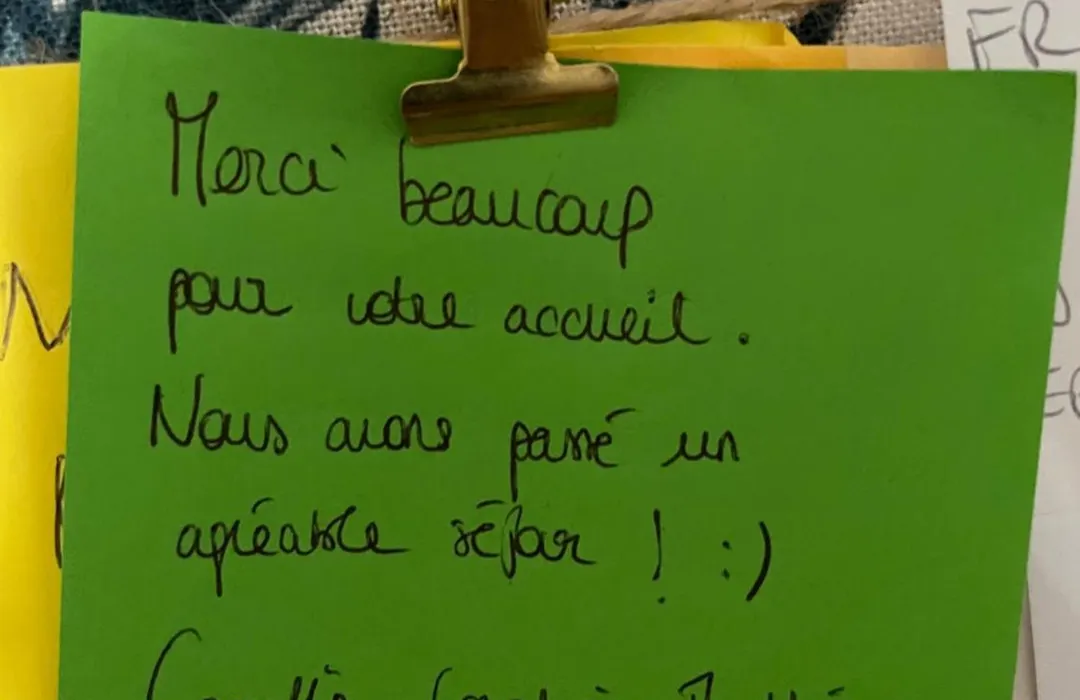 Merci beaucoup
pour votre accueil.
Nous avons passé un
agréable séjour ! :)
FR